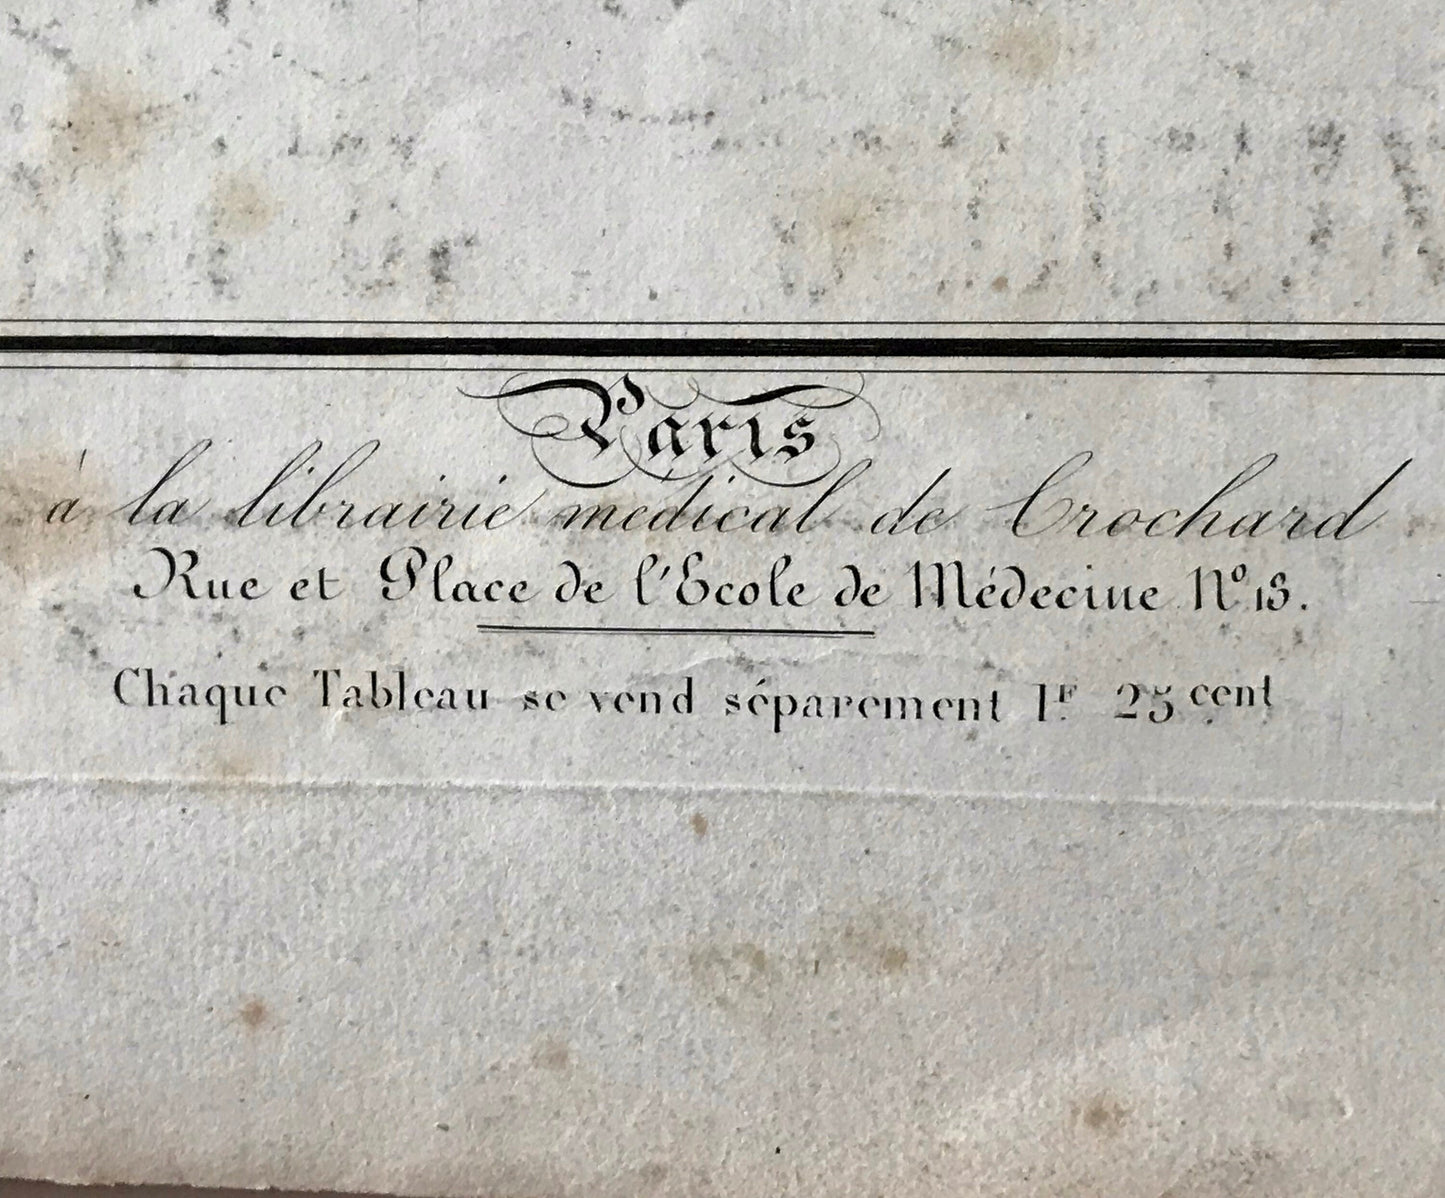 Paris
à la librairie médical de Crochard
Rue et Place de l'Ecole de Médecine N° 13.
Chaque Tableau se vend séparement 1F. 25 cent